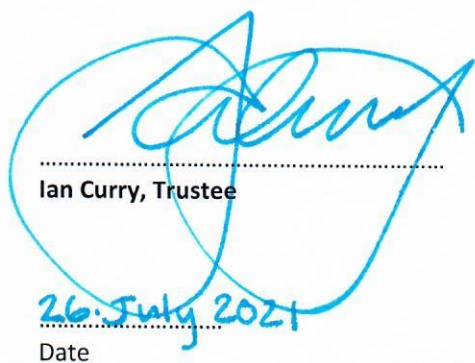 Ian Curry, Trustee
26. July 2021
Date